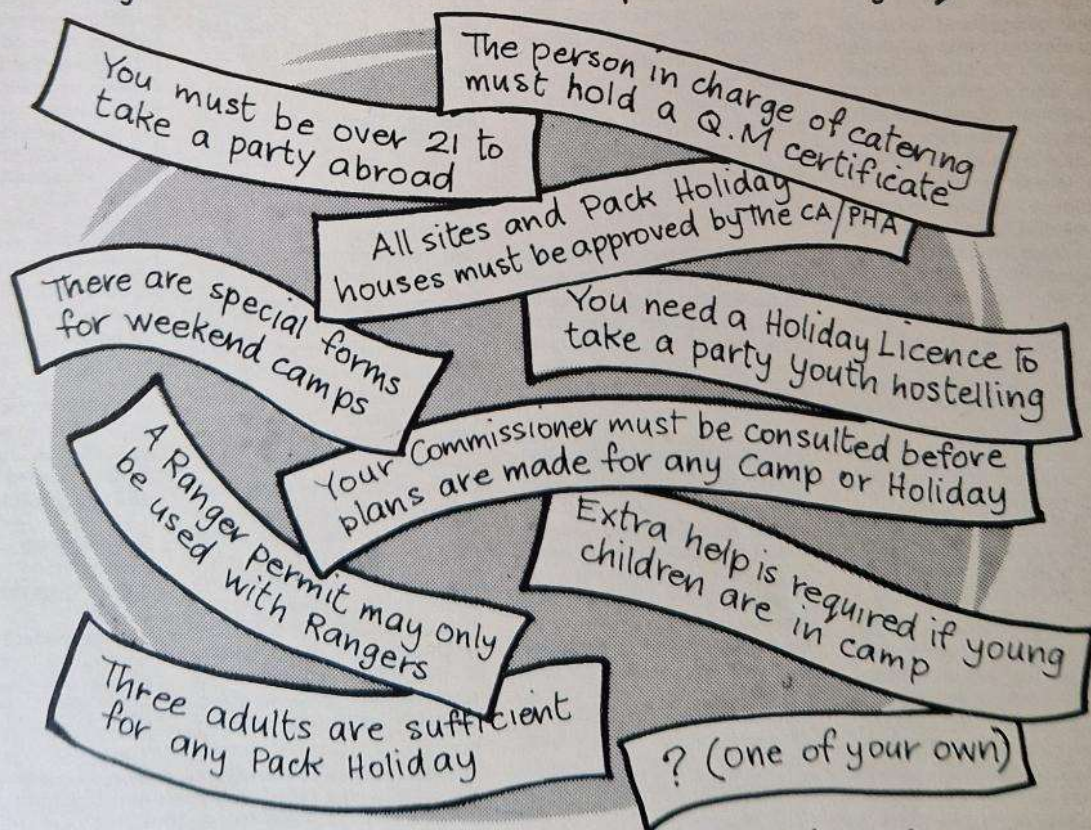 You must be over 21 to
take a party abroad
The person in charge of catering
must hold a Q.M certificate
All sites and Pack Holiday
houses must be approved by the CA/PHA
There are special forms
for weekend camps
You need a Holiday Licence to
take a party youth hostelling
Your Commissioner must be consulted before
plans are made for any Camp or Holiday
A Ranger permit may only
be used with Rangers
Extra help is required if young
children are in camp
Three adults are sufficient
for any Pack Holiday
? (one of your own)